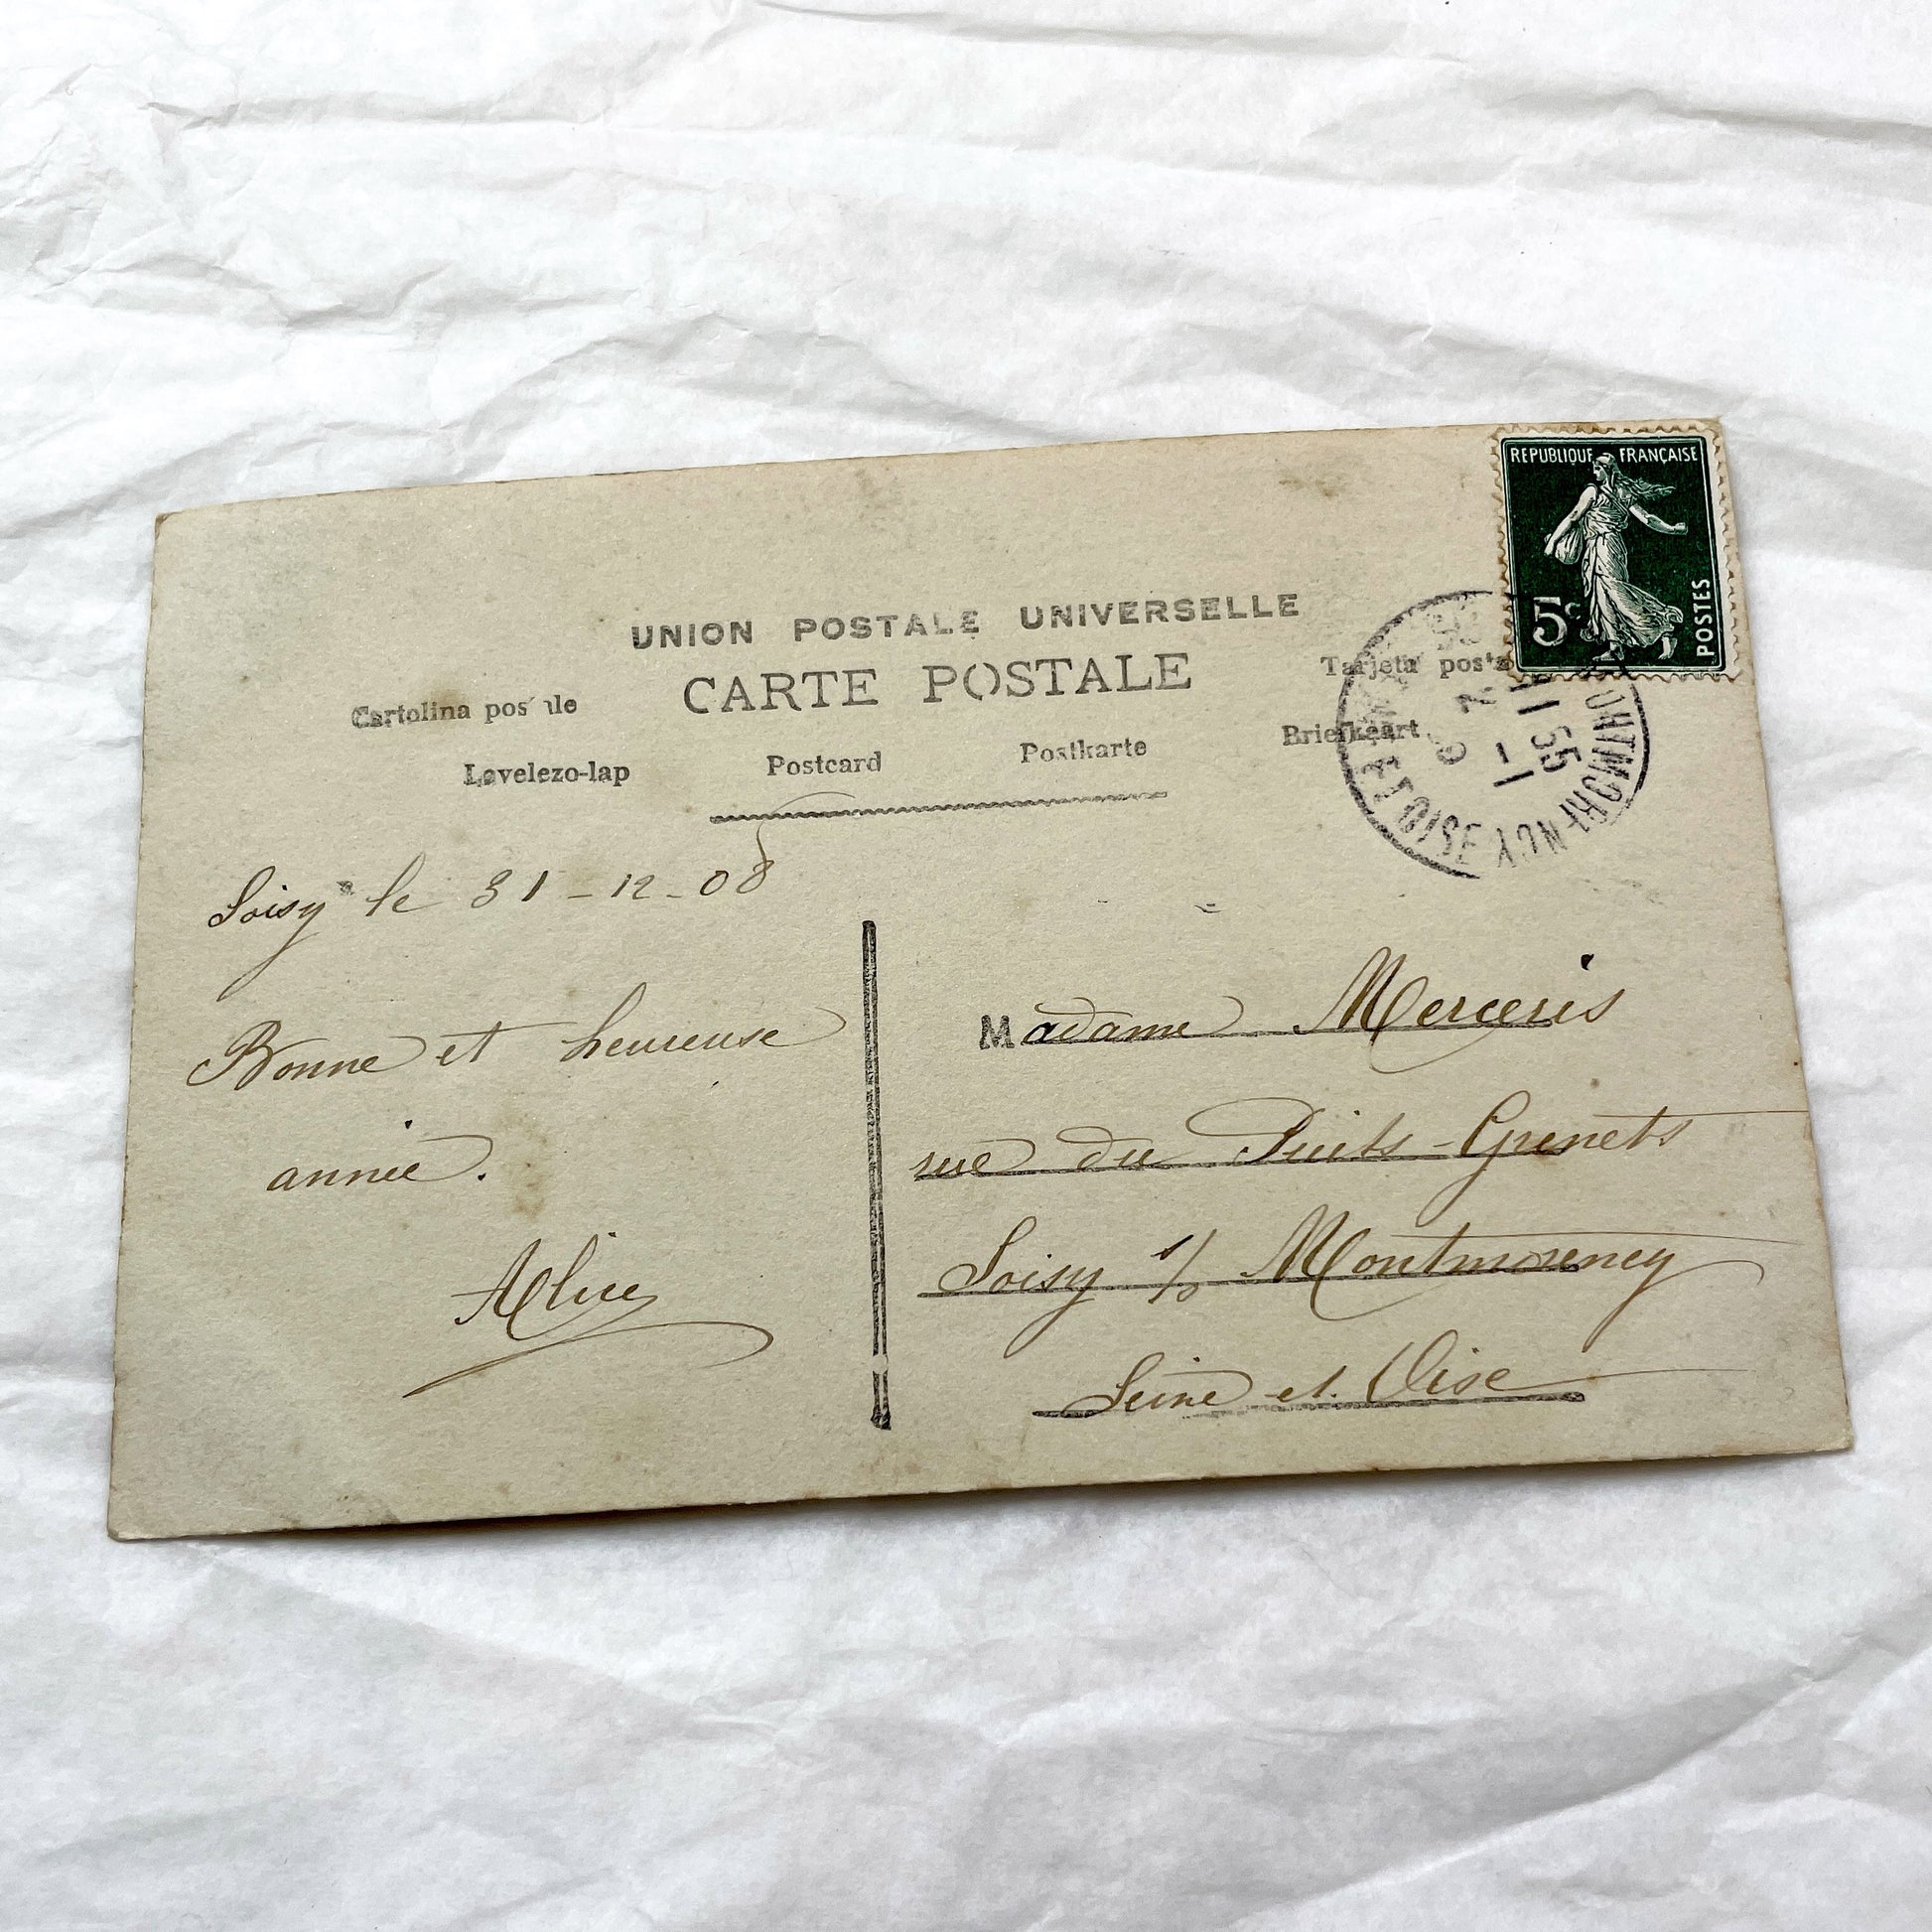 REPUBLIQUE FRANÇAISE
5c
POSTES
UNION POSTALE UNIVERSELLE
CARTE POSTALE
Cartolina postale
Tarjeta posta
Levelezo-lap Postcard Postkarte Briefkaart
MONTMORENCY
ET OISE
11 55
Soisy le 31-12-08
Bonne et heureuse
année.
Alice
Madame Merceris
rue du Puits-Grenets
Soisy s/s Montmorency
Seine et Oise